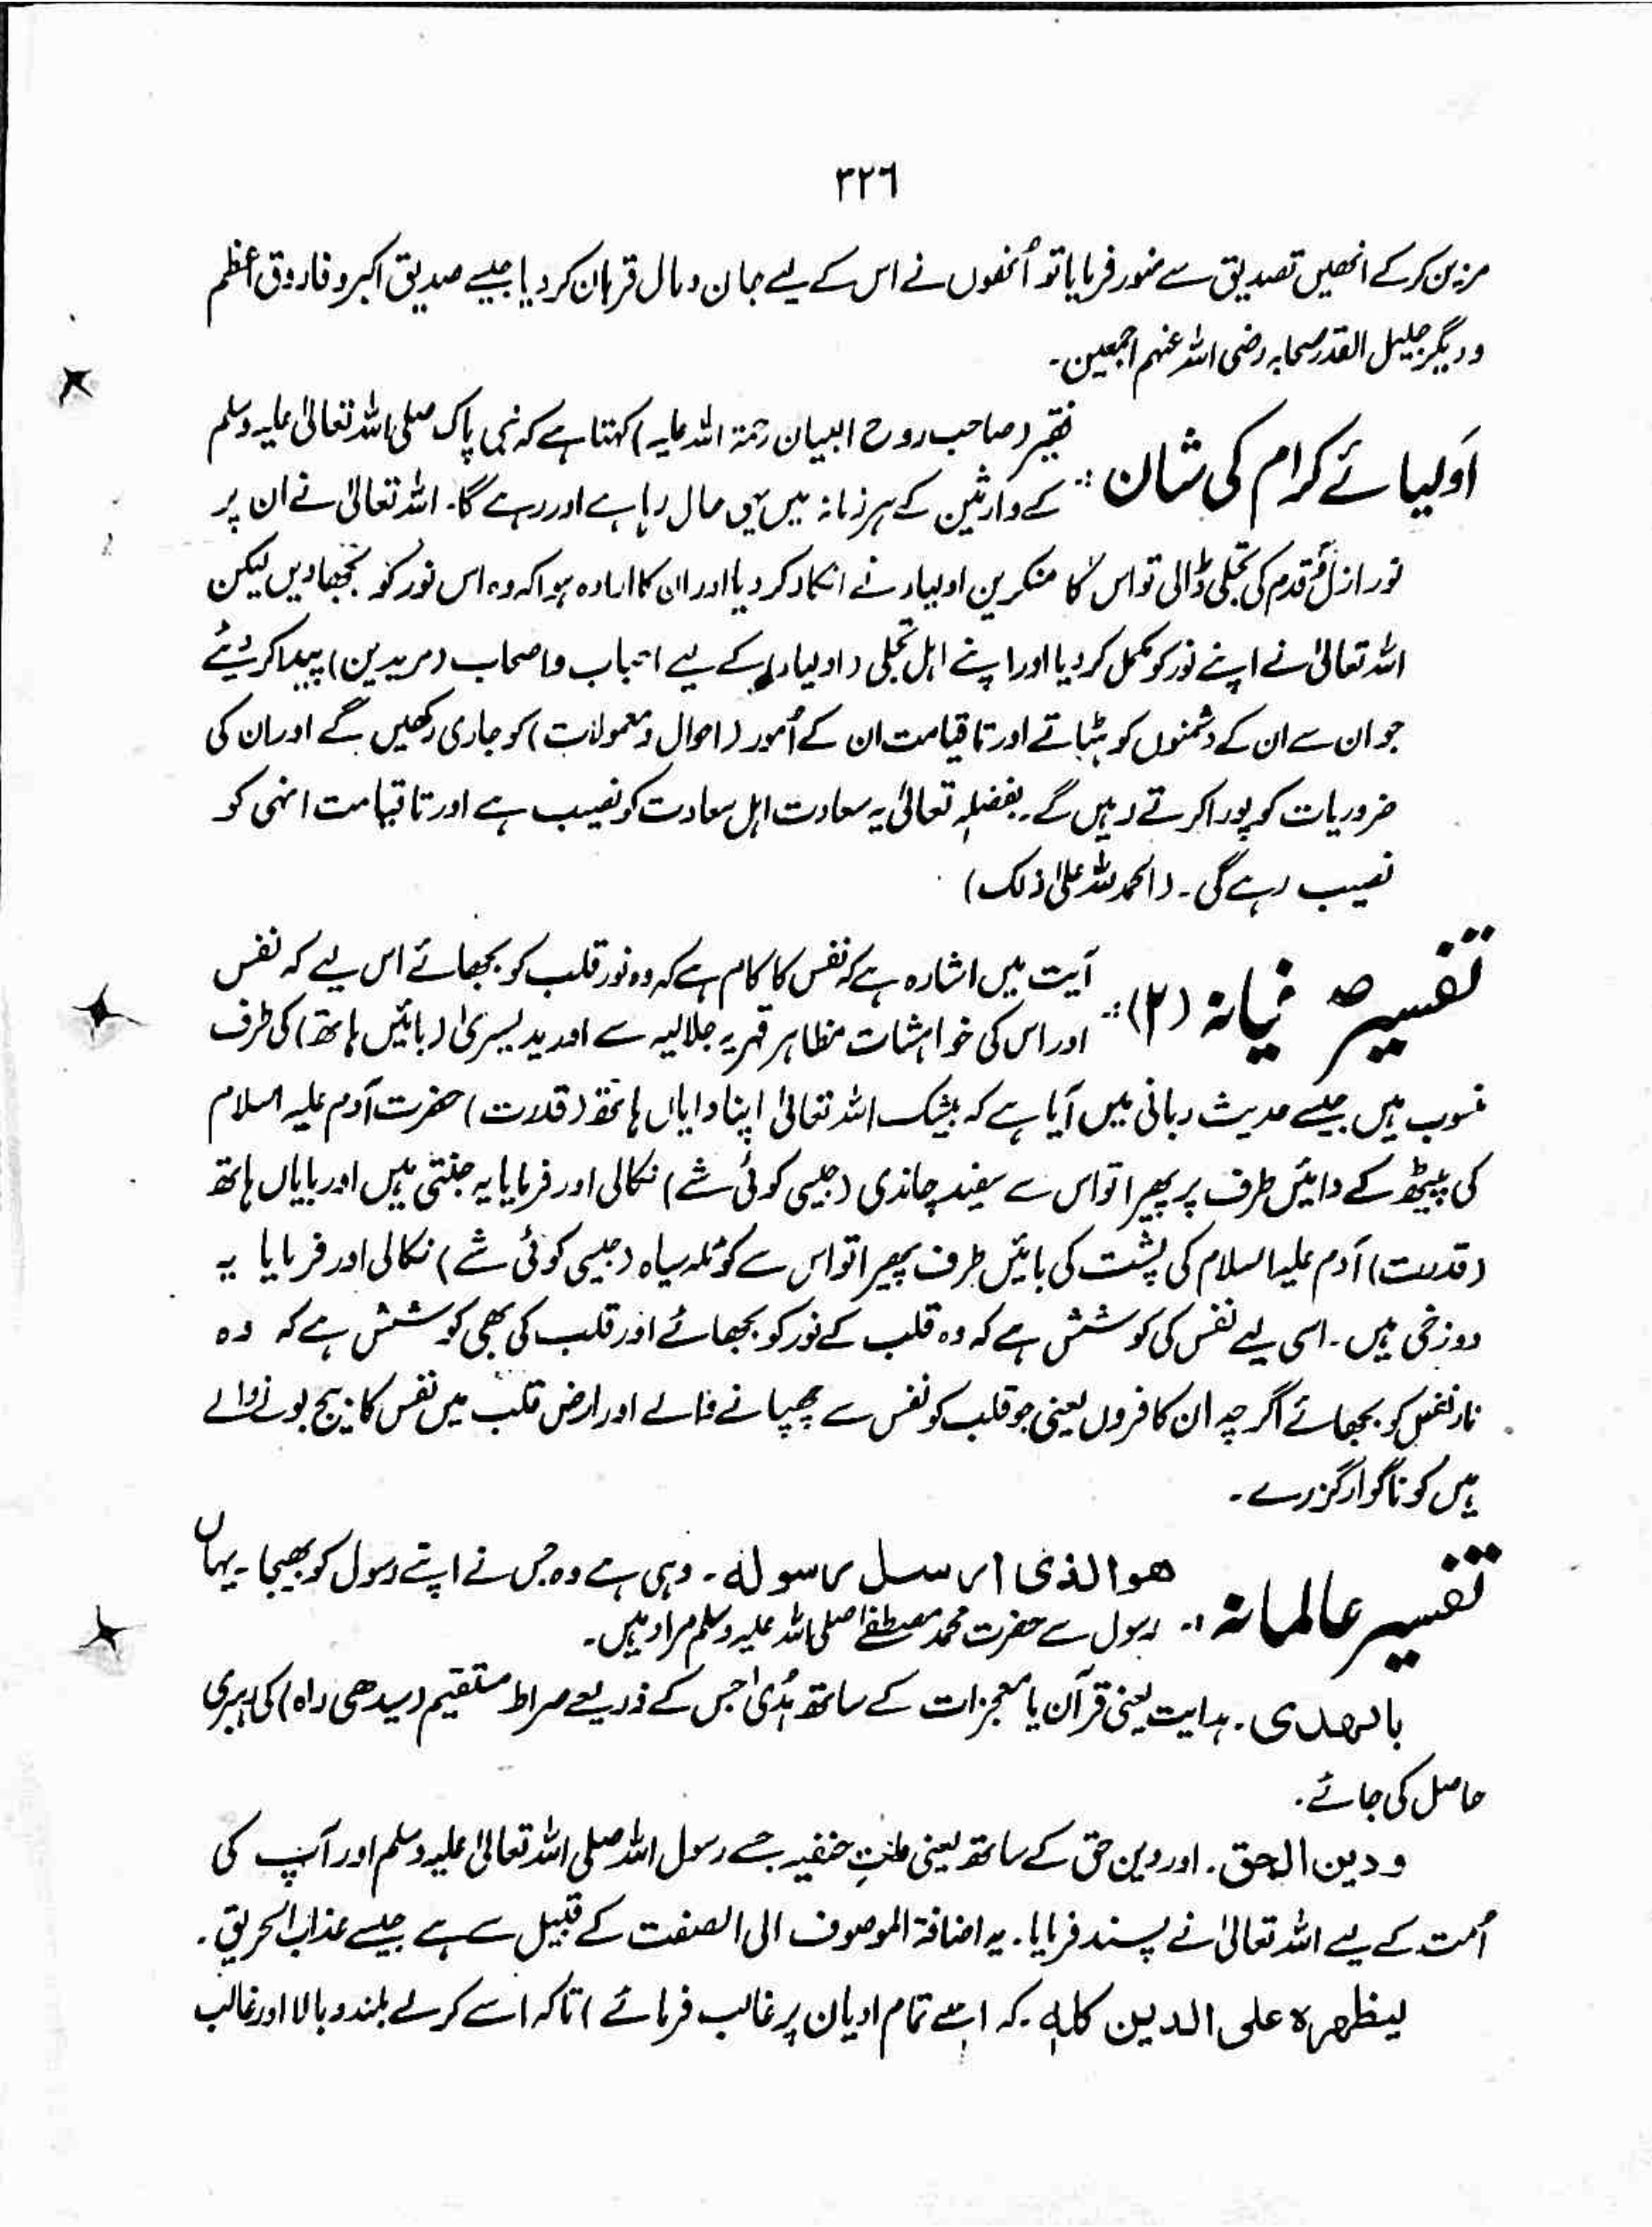 ۳۲٦
مزین کرکے انھیں تصدیق سے منور فرمایا تو اُنھوں نے اس کے لیے جان ومال قربان کردیا جیسے صدیق اکبر وفاروق اعظم
ودیگر جلیل القدر صحابہ رضی اللہ عنہم اجمعین۔
اَولیائے کرام کی شان :۔ فقیر (صاحب روح البیان رحمۃ اللہ علیہ) کہتا ہے کہ نبی پاک صلی اللہ تعالیٰ علیہ وسلم
کے وارثین کے ہر زمانہ میں یہی حال رہا ہے اور رہے گا۔ اللہ تعالیٰ نے ان پر
نور ازل و قدم کی تجلی ڈالی تو اس کا منکرین اولیاء نے انکار کردیا اور ان کا ارادہ ہوا کہ وہ اس نور کو بُجھا دیں لیکن
اللہ تعالیٰ نے اپنے نور کو مکمل کردیا اور اپنے اہل تجلی (اولیاء) کے لیے احباب و اصحاب (مریدین) پیدا کر دیئے
جو ان سے ان کے دشمنوں کو ہٹاتے اور تا قیامت ان کے اُمور (احوال ومعمولات) کو جاری رکھیں گے اور ان کی
ضروریات کو پورا کرتے رہیں گے۔ بفضلہ تعالیٰ یہ سعادت اہل سعادت کو نصیب ہے اور تا قیامت انہی کو
نصیب رہے گی۔ (الحمد للہ علیٰ ذلک)
تفسیر صوفیانہ (۲) :۔ آیت میں اشارہ ہے کہ نفس کا کام ہے کہ وہ نور قلب کو بجھائے اس لیے کہ نفس
اور اس کی خواہشات مظاہر قہریہ جلالیہ سے اور ید یسریٰ (بائیں ہاتھ) کی طرف
منسوب ہیں جیسے حدیث ربانی میں آیا ہے کہ بیشک اللہ تعالیٰ اپنا دایاں ہاتھ (قدرت) حضرت آدم علیہ السلام
کی پیٹھ کے دائیں طرف پر پھیرا تو اس سے سفید چاندی (جیسی کوئی شے) نکالی اور فرمایا یہ جنتی ہیں اور بایاں ہاتھ
(قدرت) آدم علیہ السلام کی پشت کی بائیں طرف پھیرا تو اس سے کوئلہ سیاہ (جیسی کوئی شے) نکالی اور فرمایا یہ
دوزخی ہیں۔ اسی لیے نفس کی کوشش ہے کہ وہ قلب کے نور کو بجھائے اور قلب کی بھی کوشش ہے کہ وہ
نار نفس کو بجھائے اگرچہ ان کافروں یعنی جو قلب کو نفس سے چھپانے والے اور ارض قلب میں نفس کا بیج بونے والے
ہیں کو ناگوار گزرے۔
تفسیر عالمانہ :۔ ھو الذی ارسل رسولہ۔ وہی ہے وہ جس نے اپنے رسول کو بھیجا۔ یہاں
رسول سے حضرت محمد مصطفےٰ صلی اللہ علیہ وسلم مراد ہیں۔
بالھدی۔ ہدایت یعنی قرآن یا معجزات کے ساتھ ہُدیٰ جس کے ذریعے صراط مستقیم (سیدھی راہ) کی رہبری
حاصل کی جائے۔
ودین الحق۔ اور دین حق کے ساتھ یعنی ملتِ حنفیہ جسے رسول اللہ صلی اللہ تعالیٰ علیہ وسلم اور آپ کی
اُمت کے لیے اللہ تعالیٰ نے پسند فرمایا۔ یہ اضافۃ الموصوف الی الصفت کے قبیل سے ہے جیسے عذاب الحریق۔
لیظھرہ علی الدین کلہ۔ کہ اسے تمام ادیان پر غالب فرمائے) تاکہ اسے کرلے بلند وبالا اور غالب